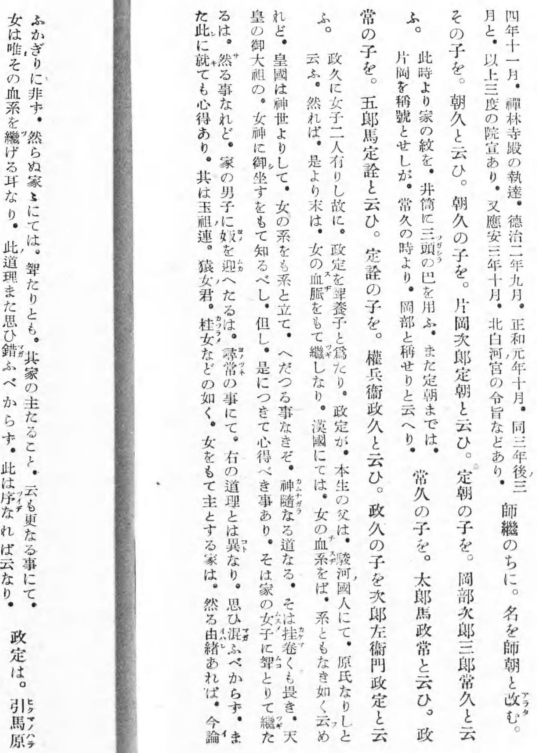 四年十一月。禪林寺殿の執達。德治二年九月。正和元年十月。同三年後三
月と。以上三度の院宣あり。又應安三年十月。北白河宮の令旨などあり。 師繼のちに。名を師朝と改む。
その子を。朝久と云ひ。朝久の子を。片岡次郎定朝と云ひ。定朝の子を。岡部次郎三郎常久と云
ふ。此時より家の紋を。井筒に三頭の巴を用ふ。また定朝までは。
片岡を稱號とせしが。常久の時より。岡部と稱せりと云へり。 常久の子を。太郎馬政常と云ひ。政
常の子を。五郎馬定詮と云ひ。定詮の子を。權兵衞政久と云ひ。政久の子を次郎左衞門政定と云
ふ。政久に女子二人有りし故に。政定を聟養子と爲たり。政定が。本生の父は。駿河國人にて。原氏なりしと
云ふ。然れば。是より末は。女の血脈をもて繼しなり。漢國にては。女の血系をば。系ともなき如く云め
れど。皇國は神世よりして。女の系をも系と立て。へだつる事なきぞ。神隨なる道なる。そは挂卷くも畏き。天
皇の御大祖の。女神に御坐すをもて知るべし。但し。是につきて心得べき事あり。そは家の女子に聟とりて繼た
るは。然る事なれど。家の男子に妭を迎へたるは。尋常の事にて。右の道理とは異なり。思ひ混ふべからず。ま
た此に就ても心得あり。其は玉祖連。猿女君。桂女などの如く。女をもて主とする家は。然る由緒あれば。今論
ふかぎりに非ず。然らぬ家々にては。聟たりとも。其家の主たること。云も更なる事にて。
女は唯その血系を繼げる耳なり。此道理また思ひ錯ふべからず。此は序なれば云なり。 政定は。引馬原